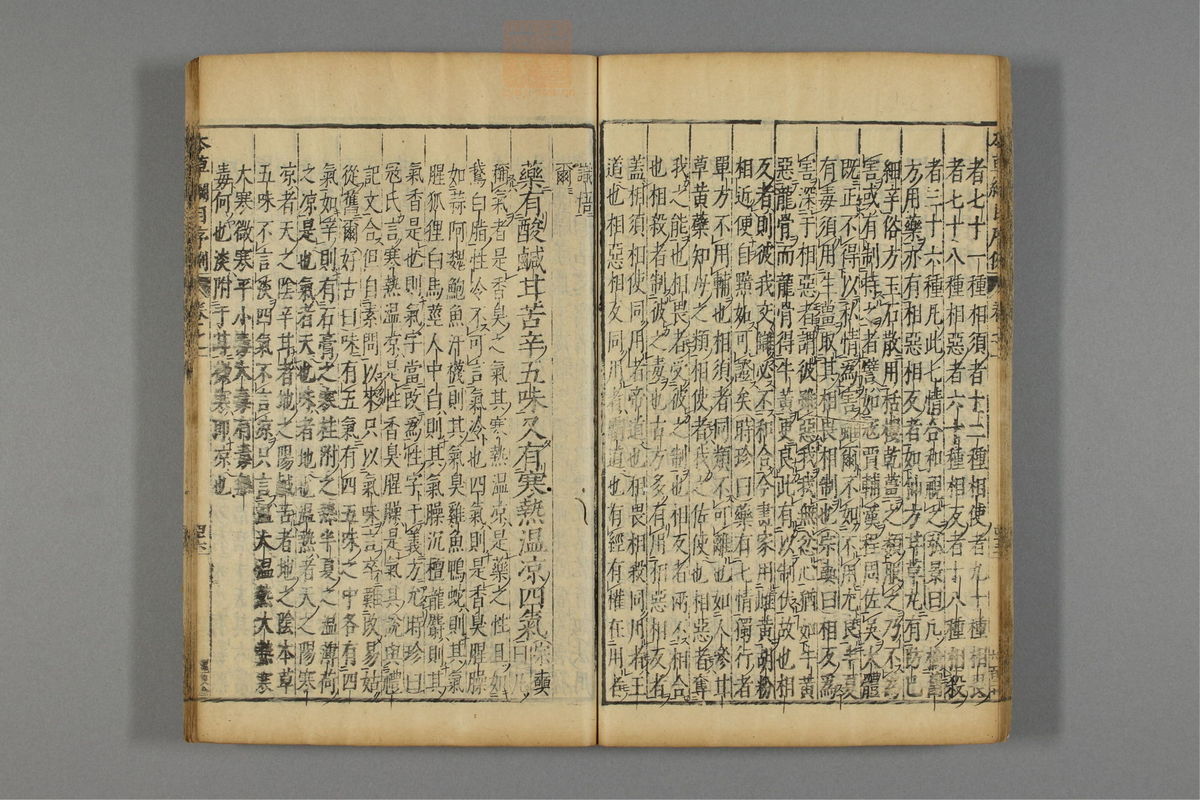 者七十一種相須者十二種相使者九十種相畏
者七十八種相惡者六十種相反者十八種相殺
者三十六種凡此七情合和視之弘景曰凡檢舊
方用藥亦有相惡相反者如仙方甘草丸有防已
細辛俗方玉石散用栝樓乾薑之類服之乃不為
害或有制持之者譬如寇賈輔漢程周佐吳大體
既正不得以私情為害雖爾不如不用尤良半夏
有毒須用生薑取其相畏相制也宗奭曰相反為
害深于相惡者謂彼雖惡我我無忿心猶如牛黃
惡龍骨而龍骨得牛黃更良此有以制伏故也相
反者則彼我交讎必不和合今畫家用雌黃胡粉
相近便自黯妬可證矣時珍曰藥有七情獨行者
單方不用輔也相須者同類不可離也如人參甘
草黃蘗知母之類相使者我之佐使也相惡者奪
我之能也相畏者受彼之制也相反者兩不相合
也相殺者制彼之毒也古方多有用相惡相反者
蓋相須相使同用者帝道也相畏相殺同用者王
道也相惡相反同用者霸道也有經有權在用者
識悟
爾
藥有酸鹹甘苦辛五味又有寒熱溫涼四氣宗奭曰
稱氣者是香臭之氣其寒熱溫涼是藥之性且如
鵝白脂性冷不可言氣冷也四氣則是香臭腥臊
如蒜阿魏鮑魚汗襪則其氣臭雞魚鴨蛇則其氣
腥狐狸白馬莖人中白則其氣臊沉檀龍麝則其
氣香是也則氣字當改為性字于義方允時珍曰
寇氏言寒熱溫涼是性香臭腥臊是氣其說與禮
記文合但自素問以來只以氣味言卒難改易姑
從舊爾好古曰味有五氣有四五味之中各有四
氣如辛則有石膏之寒桂附之熱半夏之溫薄荷
之涼是也氣者天也味者地也溫熱者天之陽寒
涼者天之陰辛甘者地之陽鹹苦者地之陰本草
五味不言淡四氣不言涼只言溫大溫熱大熱寒
大寒微寒平小毒大毒有毒無
毒何也淡附于甘微寒即涼也
本草綱目序例